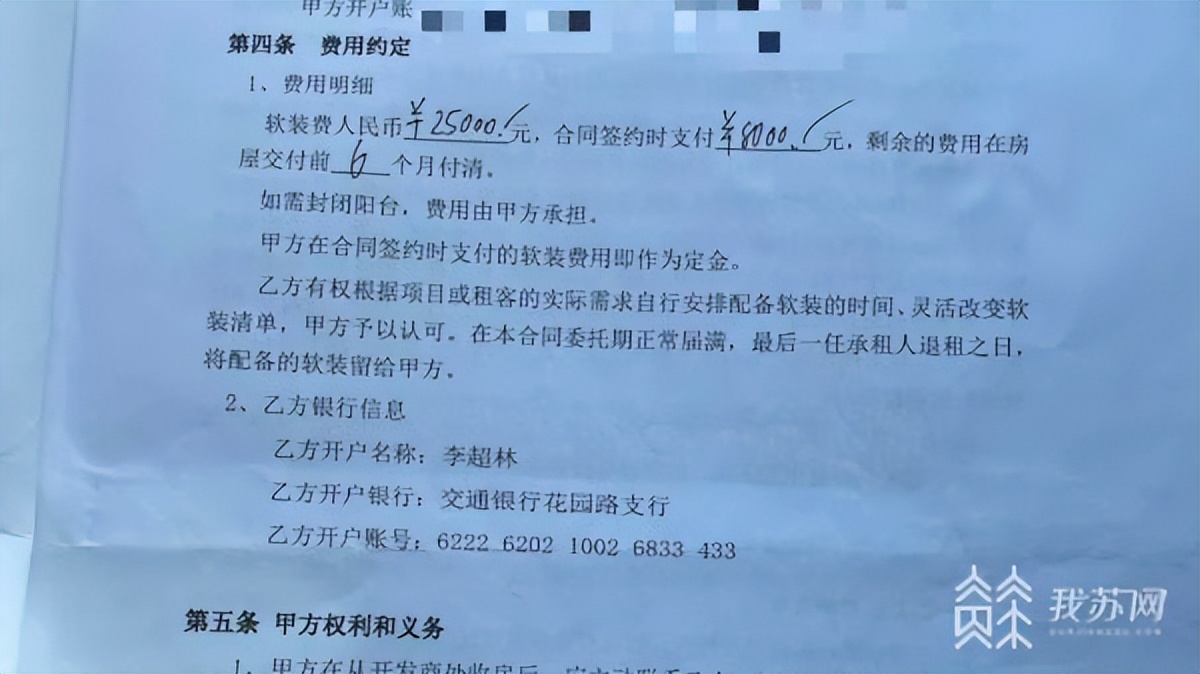 甲方开户账
第四条 费用约定
1、费用明细
软装费人民币¥25000.元，合同签约时支付¥8000.元，剩余的费用在房
屋交付前6个月付清。
如需封闭阳台，费用由甲方承担。
甲方在合同签约时支付的软装费用即作为定金。
乙方有权根据项目或租客的实际需求自行安排配备软装的时间、灵活改变软
装清单，甲方予以认可。在本合同委托期正常届满，最后一任承租人退租之日，
将配备的软装留给甲方。
2、乙方银行信息
乙方开户名称：李超林
乙方开户银行：交通银行花园路支行
乙方开户账号：6222 6202 1002 6833 433
第五条 甲方权利和义务
1、甲方在从开发商处收房后，应主动联系乙方
我苏网